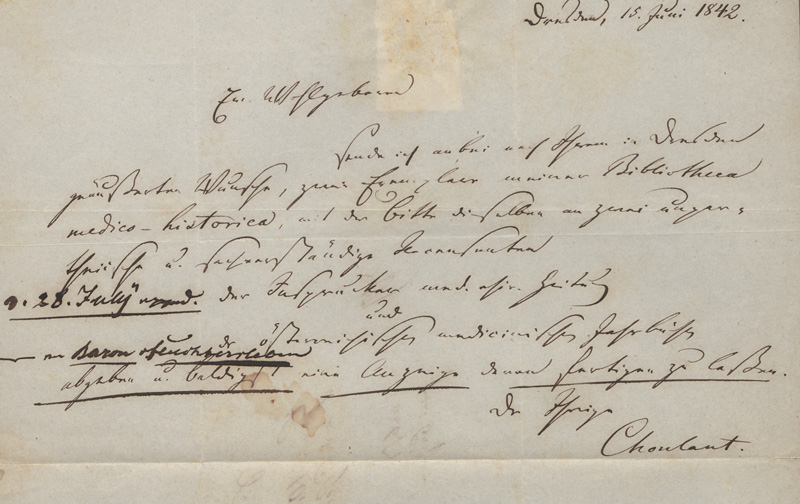 Dresden, 15. Juni 1842.
Ew. Wohlgeboren
sende ich anbei nach Ihrem in Dresden
geäußerten Wunsche, zwei Exemplare meiner Bibliotheca
medico-historica, mit der Bitte dieselben an zwei unpar-
theiische u. sachverständige Recensenten
28. July der Insprucker med. chir. Zeitung
und
an Baron Feuchtersleben der östereichischen medicinischen Jahrbücher
abgeben u. baldigst eine Anzeige davon fertigen zu laßen.
Der Ihrige
Choulant.